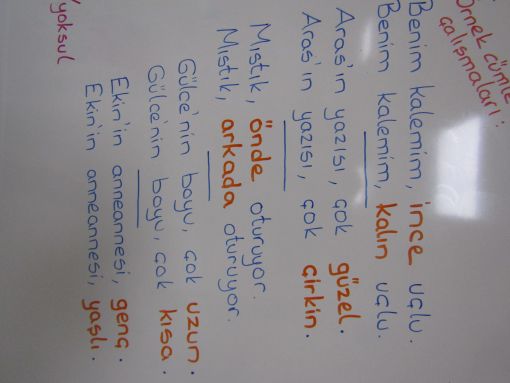 Örnek cümle
çalışmaları:
Benim kalemim, ince uçlu.
Benim kalemim, kalın uçlu.
Aras'ın yazısı, çok güzel.
Aras'ın yazısı, çok çirkin.
Mıstık, önde oturuyor.
Mıstık, arkada oturuyor.
Gülce'nin boyu, çok uzun.
Gülce'nin boyu, çok kısa.
Ekin'in anneannesi, genç.
Ekin'in anneannesi, yaşlı.
yoksul